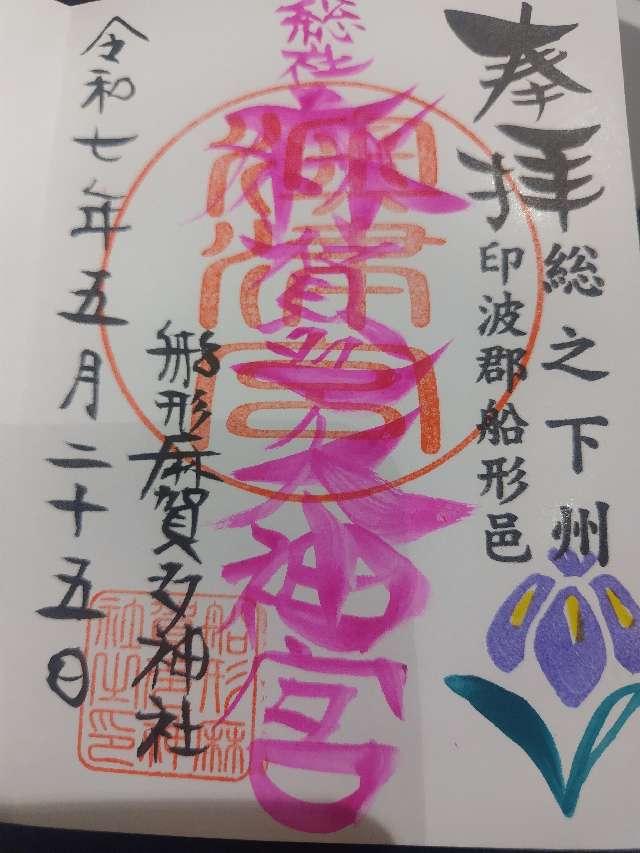 奉拝
総之下州
印波郡船形邑
総社
麻賀多大神宮
船形麻賀多神社
令和七年五月二十五日
船形麻
賀多神
社之印